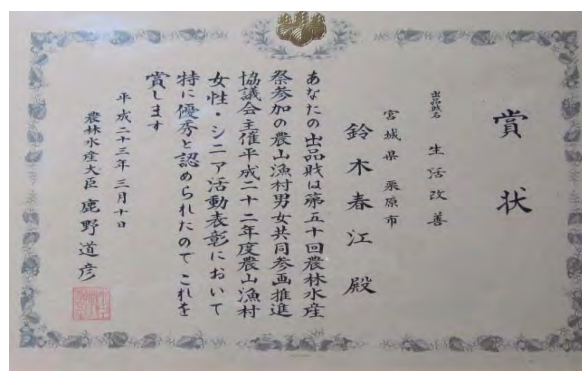 賞状
出品財名 生活改善
宮城県 栗原市
鈴木春江 殿
あなたの出品財は第五十回農林水産
祭参加の農山漁村男女共同参画推進
協議会主催平成二十二年度農山漁村
女性・シニア活動表彰において
特に優秀と認められたのでこれを
賞します
平成二十三年三月十日
農林水産大臣 鹿野道彦